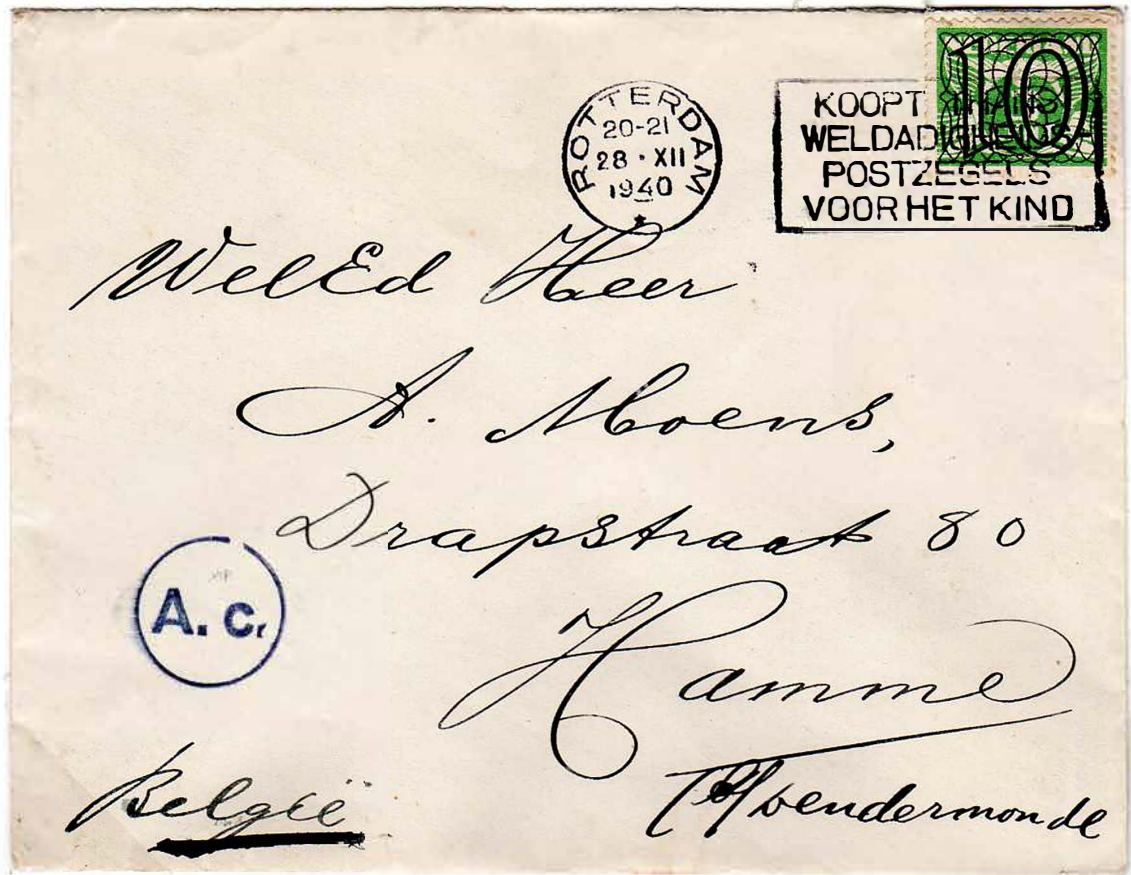 ROTTERDAM
20-21
28 · XII
1940
KOOPT THANS
WELDADIGHEIDS-
POSTZEGELS
VOOR HET KIND
10
WelEd Heer
A. Moens,
Drapstraat 80
Hamme
Dendermonde
A. c.
België